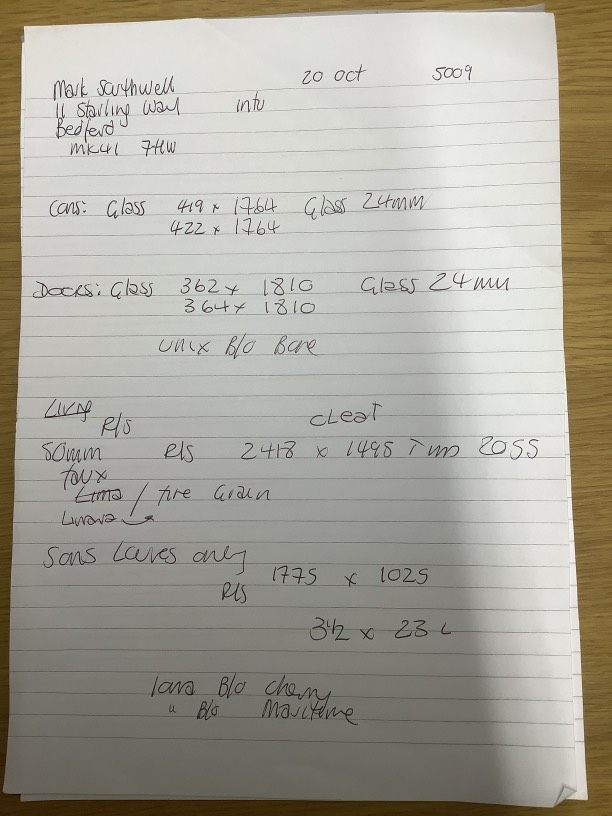 Mark Southwell 20 Oct 5009
11 Starling Way intu
Bedford
MK41 7HW
Cons: Glass 419 x 1764 Glass 24mm
422 x 1764
Doors: Glass 362 x 1810 Glass 24mm
364 x 1810
Unix B/o Bone
Living
R/s cleat
50mm R/s 2418 x 1495 2055
faux
/ fine Grain
Sons Louves only
1775 x 1025
R/s
3 1/2 x 23
B/o Cherry
" B/o Maritime